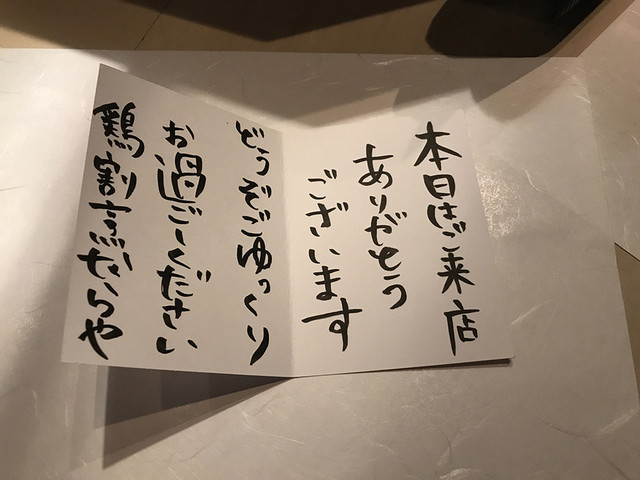 本日はご来店
ありがとう
ございます
どうぞごゆっくり
お過ごしください
鶏割烹ならや